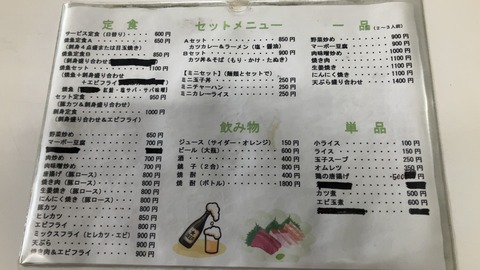 定食
サービス定食(日替り) 600円
焼魚定食A 650円
(刺身+点盛または目玉焼き)
焼魚定食B 850円
(刺身盛り合わせ
焼魚セット 1100円
(焼魚+刺身盛り合わせ
+エビフライ)
焼魚
紅鮭・塩サバ・サバ味噌)
セット定食 950円
(豚カツ&刺身盛り合わせ)
刺身定食 1000円
(刺身盛り合わせ&エビフライ)
野菜炒め 650円
マーボー豆腐 700円
肉炒め 700円
肉味噌炒め 700円
唐揚げ(豚ロース) 800円
焼き肉(豚ロース) 800円
生姜焼き(豚ロース) 800円
にんにく焼き(豚ロース) 800円
豚カツ
ヒレカツ
エビフライ 850円
ミックスフライ(ヒレカツ・エビ) 900円
天ぷら 900円
焼き肉&エビフライ 900円
セットメニュー
Aセット 850円
カツカレー&ラーメン(塩・醤油)
Bセット 900円
カツ丼&そば(もり・かけ・たぬき)
【ミニセット】(麺類とセットで)
ミニ玉子丼 250円
ミニチャーハン 250円
ミニカレーライス 250円
飲み物
ジュース(サイダー・オレンジ) 150円
ビール(大瓶) 600円
酒 400円
銚子(2合) 800円
焼酎 400円
焼酎(ボトル) 1800円
一品
(2~3人前)
野菜炒め 900円
マーボー豆腐 900円
焼き肉 1100円
生姜焼き 1100円
にんにく焼き 1100円
天ぷら盛り合わせ 1400円
単品
小ライス 100円
ライス 150円
玉子スープ 250円
オムレツ 350円
鶏の唐揚げ
カツ煮 500円
エビ玉煮 600円